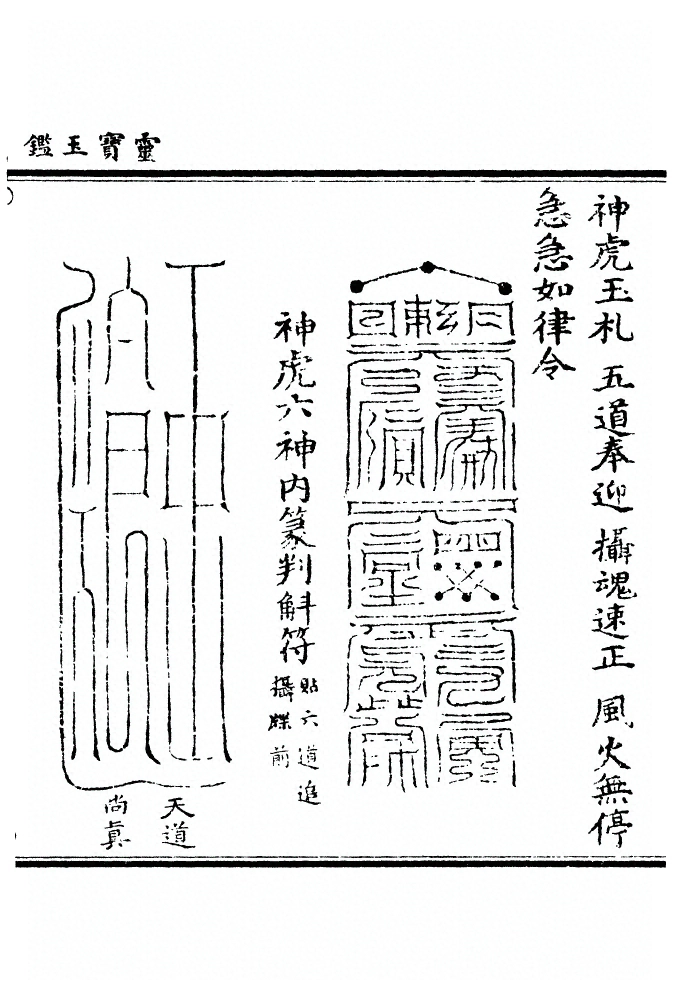 靈寶玉鑑
神虎玉札 五道奉迎 攝魂速正 風火無停
急急如律令
神虎六神內篆判斛符
貼六道追
攝牒前
天道
尚真